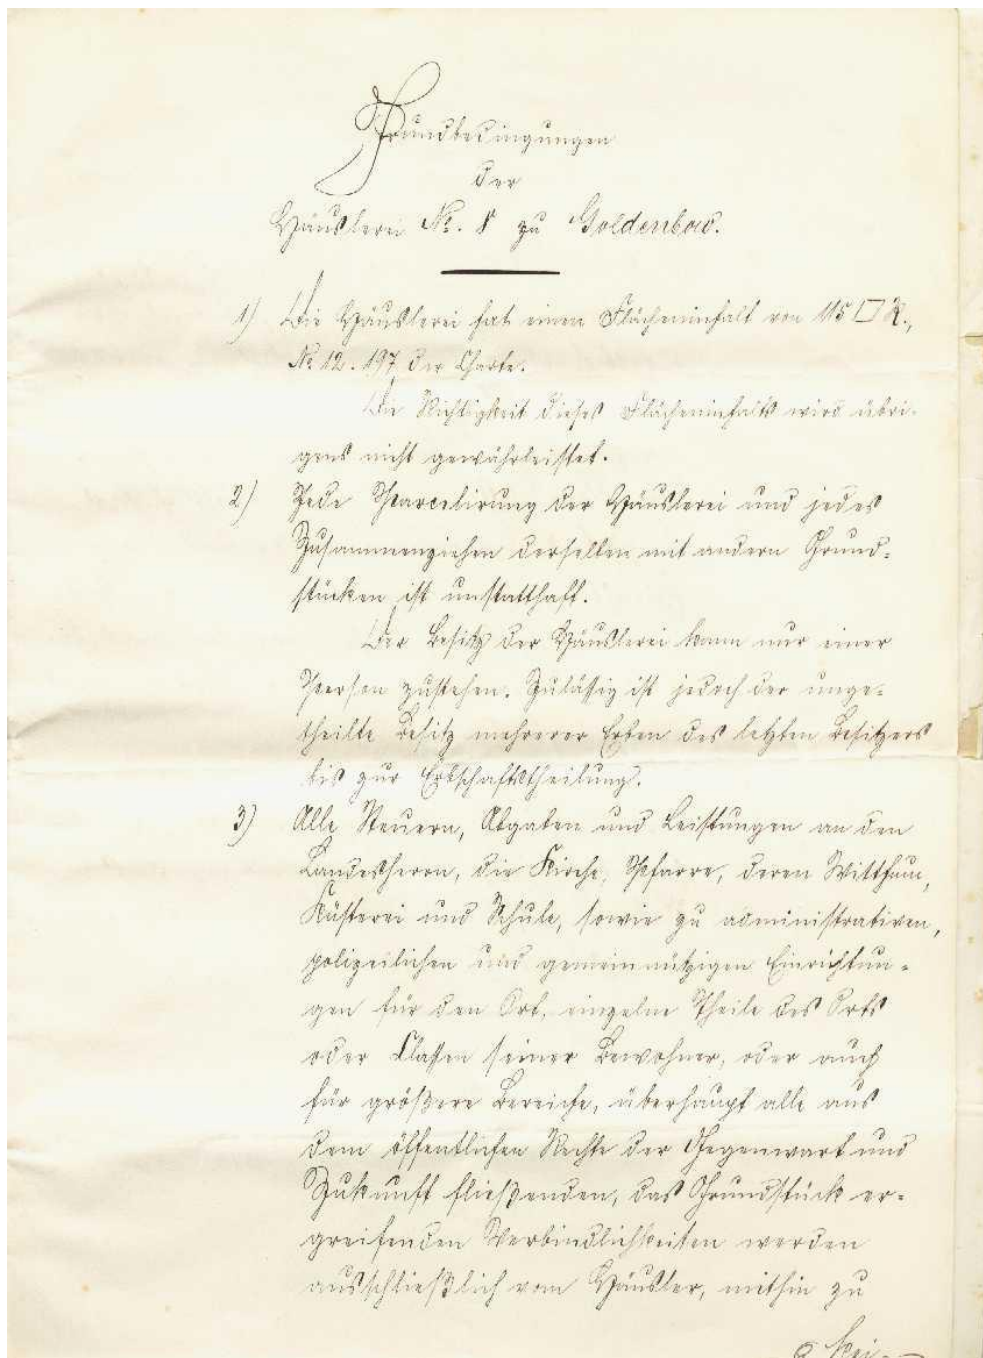 Grundbedingungen
der
Häuslerei No. 8 zu Goldenbow.
1) Die Häuslerei hat einen Flächeninhalt von 115 □ R.,
No 12. 197 der Charte.
Die Richtigkeit dieses Flächeninhalts wird übri-
gens nicht gewährleistet.
2) Jede Parcelirung der Häuslerei und jedes
Zusammenziehen derselben mit andern Grund-
stücken ist unstatthaft.
Der Besitz der Häuslerei kann nur einer
Person zustehen. Zulässig ist jedoch der unge-
theilte Besitz mehrerer Erben des letzten Besitzers
bis zur Erbschaftstheilung.
3) Alle Steuern, Abgaben und Leistungen an den
Landesherrn, die Kirche, Pfarre, deren Witthum,
Küsterei und Schule, sowie zu administrativen,
polizeilichen und gemeinnützigen Einrichtun-
gen für den Ort, einzelne Theile des Orts
oder Classen seiner Bewohner, oder auch
für größere Bereiche, überhaupt alle aus
dem öffentlichen Rechte der Gegenwart und
Zukunft fließenden, das Grundstück er-
greifenden Verbindlichkeiten werden
ausschließlich vom Häusler, mithin zu